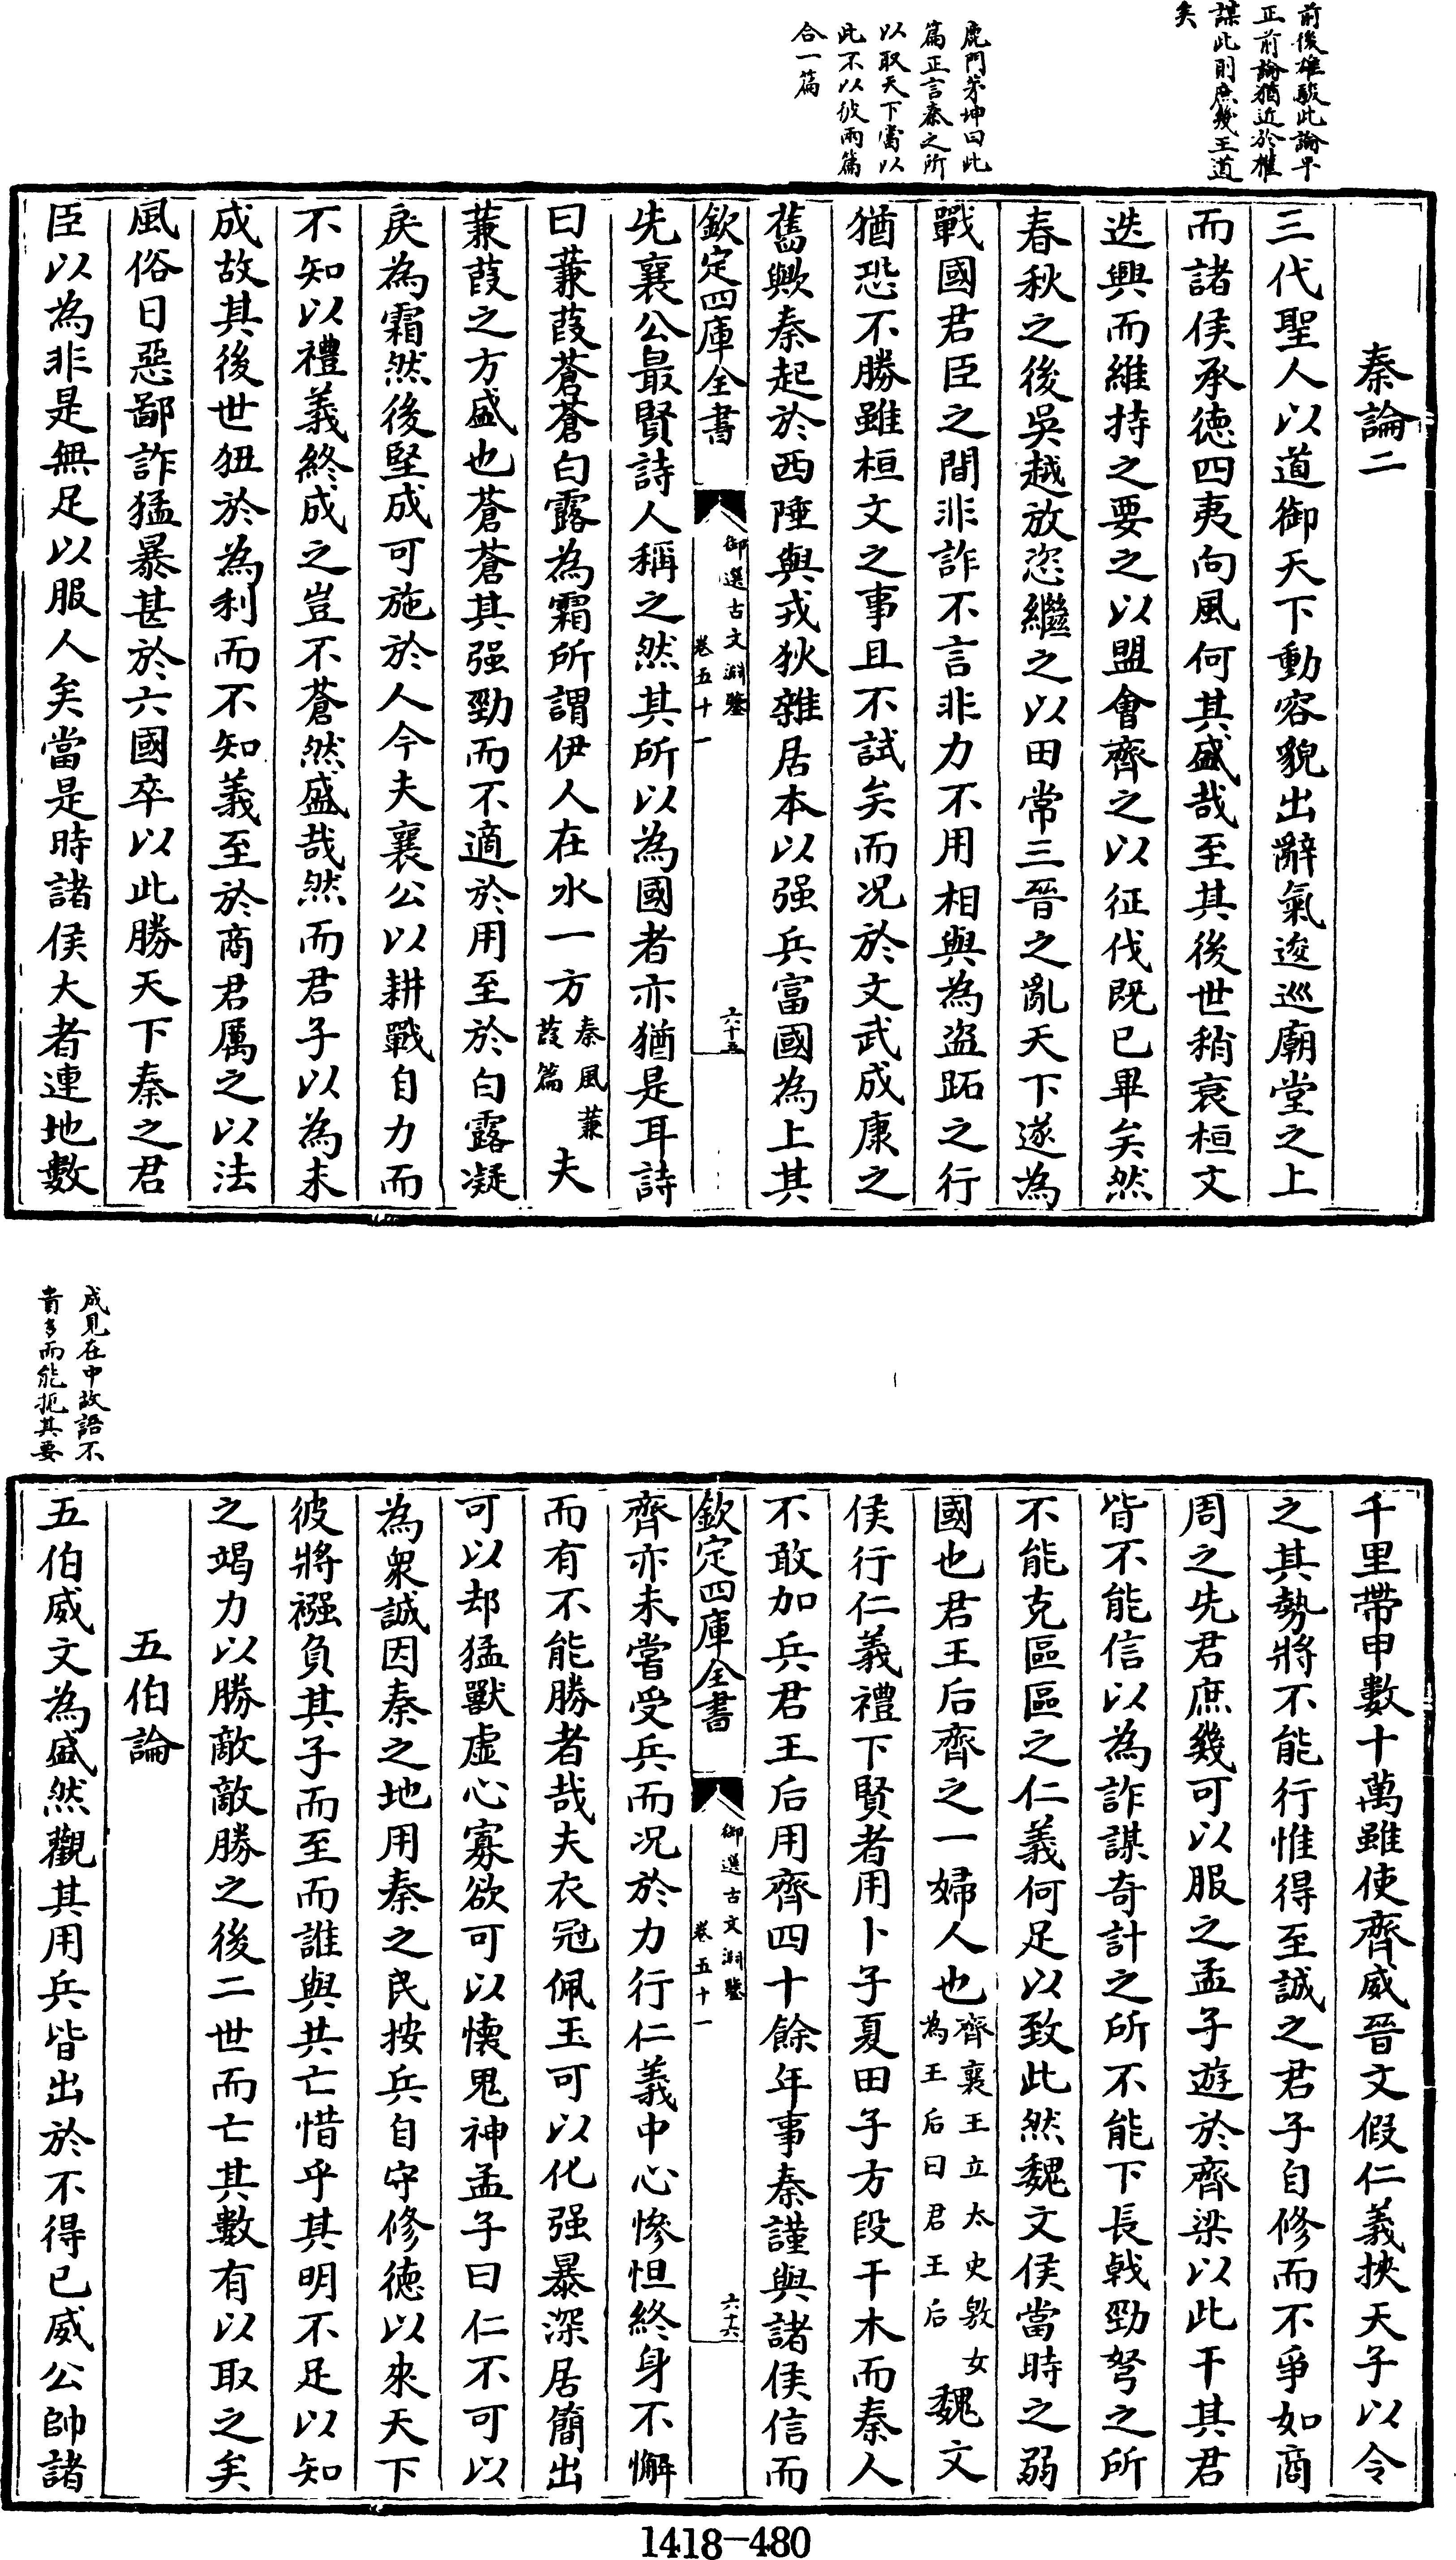 前後雄駿此論平
正前論猶近於權
謀此則庶幾王道
矣
鹿門茅坤曰此
篇正言秦之所
以取天下當以
此不以彼兩篇
合一篇
秦論二
三代聖人以道御天下動容貌出辭氣逡巡廟堂之上
而諸侯承德四夷向風何其盛哉至其後世稍衰桓文
迭興而維持之要之以盟會齊之以征伐既已畢矣然
春秋之後吳越放恣繼之以田常三晉之亂天下遂為
戰國君臣之間非詐不言非力不用相與為盜跖之行
猶恐不勝雖桓文之事且不試矣而况於文武成康之
舊歟秦起於西陲與戎狄雜居本以强兵富國為上其
欽定四庫全書
御選古文淵鑒
卷五十一
六十五
先襄公最賢詩人稱之然其所以為國者亦猶是耳詩
曰蒹葭蒼蒼白露為霜所謂伊人在水一方秦風蒹葭篇夫
蒹葭之方盛也蒼蒼其强勁而不適於用至於白露凝
戾為霜然後堅成可施於人今夫襄公以耕戰自力而
不知以禮義終成之豈不蒼然盛哉然而君子以為未
成故其後世狃於為利而不知義至於商君厲之以法
風俗日惡鄙詐猛暴甚於六國卒以此勝天下秦之君
臣以為非是無足以服人矣當是時諸侯大者連地數
成見在中故語不
貴多而能扼其要
千里帶甲數十萬雖使齊威晉文假仁義挾天子以令
之其勢將不能行惟得至誠之君子自修而不爭如商
周之先君庶幾可以服之孟子遊於齊梁以此干其君
皆不能信以為詐謀奇計之所不能下長戟勁弩之所
不能克區區之仁義何足以致此然魏文侯當時之弱
國也君王后齊之一婦人也齊襄王立太史敫女為王后曰君王后魏文
侯行仁義禮下賢者用卜子夏田子方段干木而秦人
不敢加兵君王后用齊四十餘年事秦謹與諸侯信而
欽定四庫全書
御選古文淵鑒
卷五十一
六十六
齊亦未嘗受兵而况於力行仁義中心慘怛終身不懈
而有不能勝者哉夫衣冠佩玉可以化强暴深居簡出
可以却猛獸虛心寡欲可以懷鬼神孟子曰仁不可以
為衆誠因秦之地用秦之民按兵自守修德以來天下
彼將襁負其子而至而誰與共亡惜乎其明不足以知
之竭力以勝敵敵勝之後二世而亡其數有以取之矣
五伯論
五伯威文為盛然觀其用兵皆出於不得已威公帥諸
1418-480